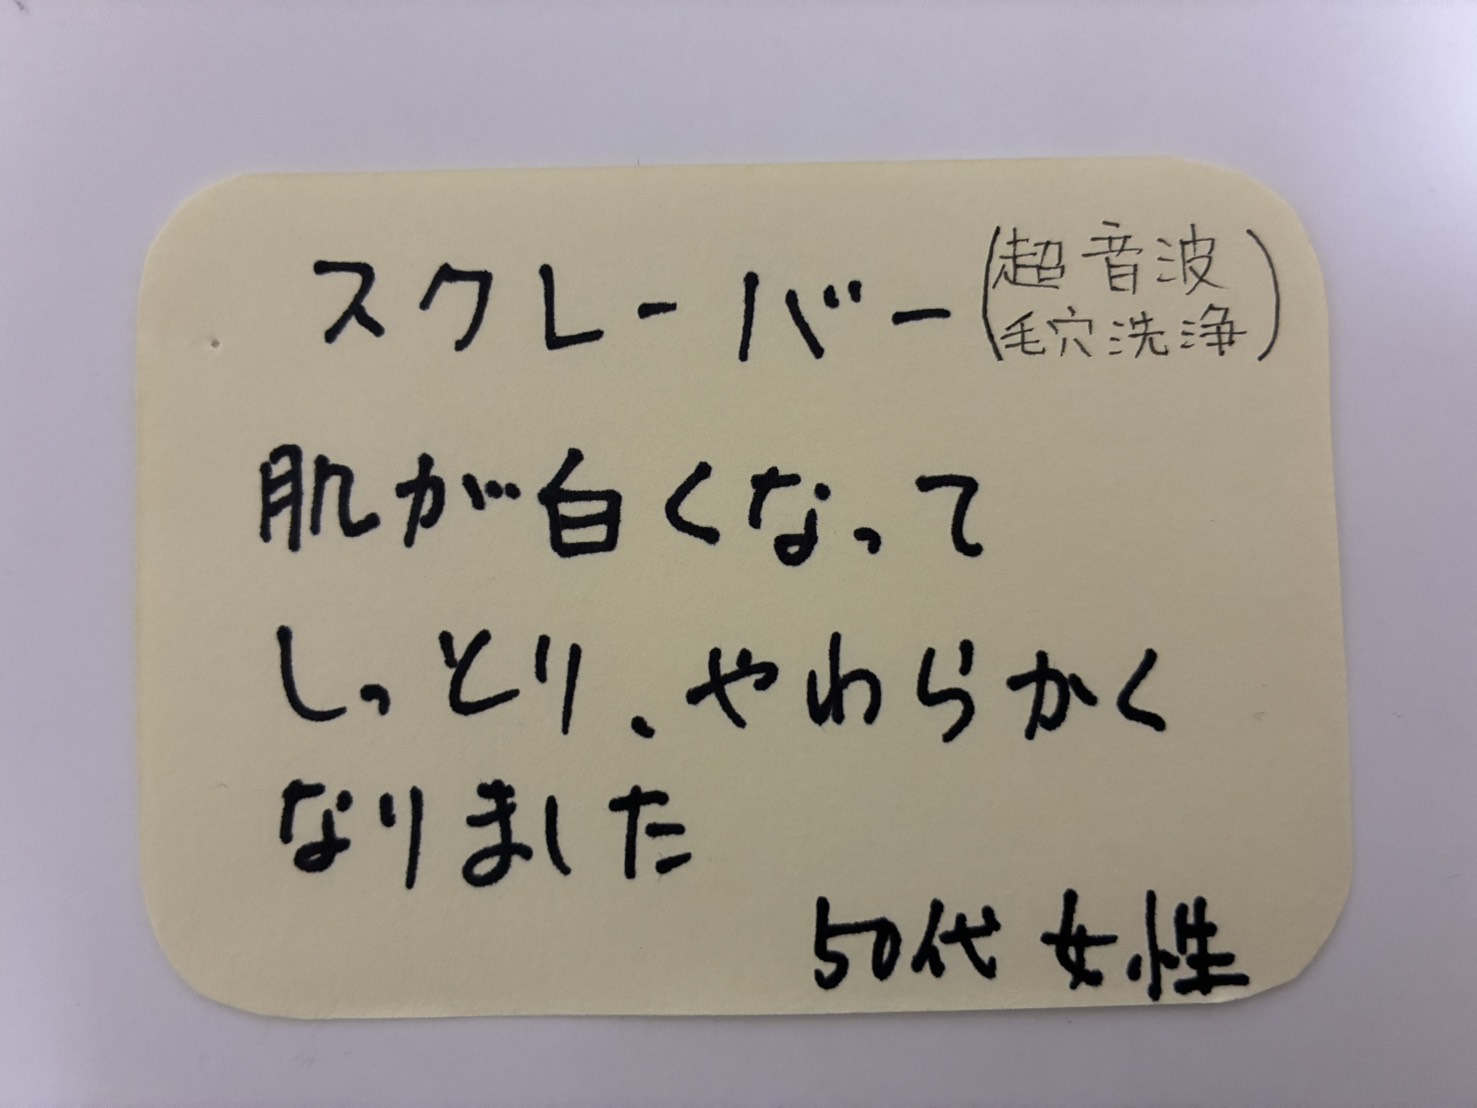 スクレーバー(超音波
毛穴洗浄)
肌が白くなって
しっとり、やわらかく
なりました
50代 女性